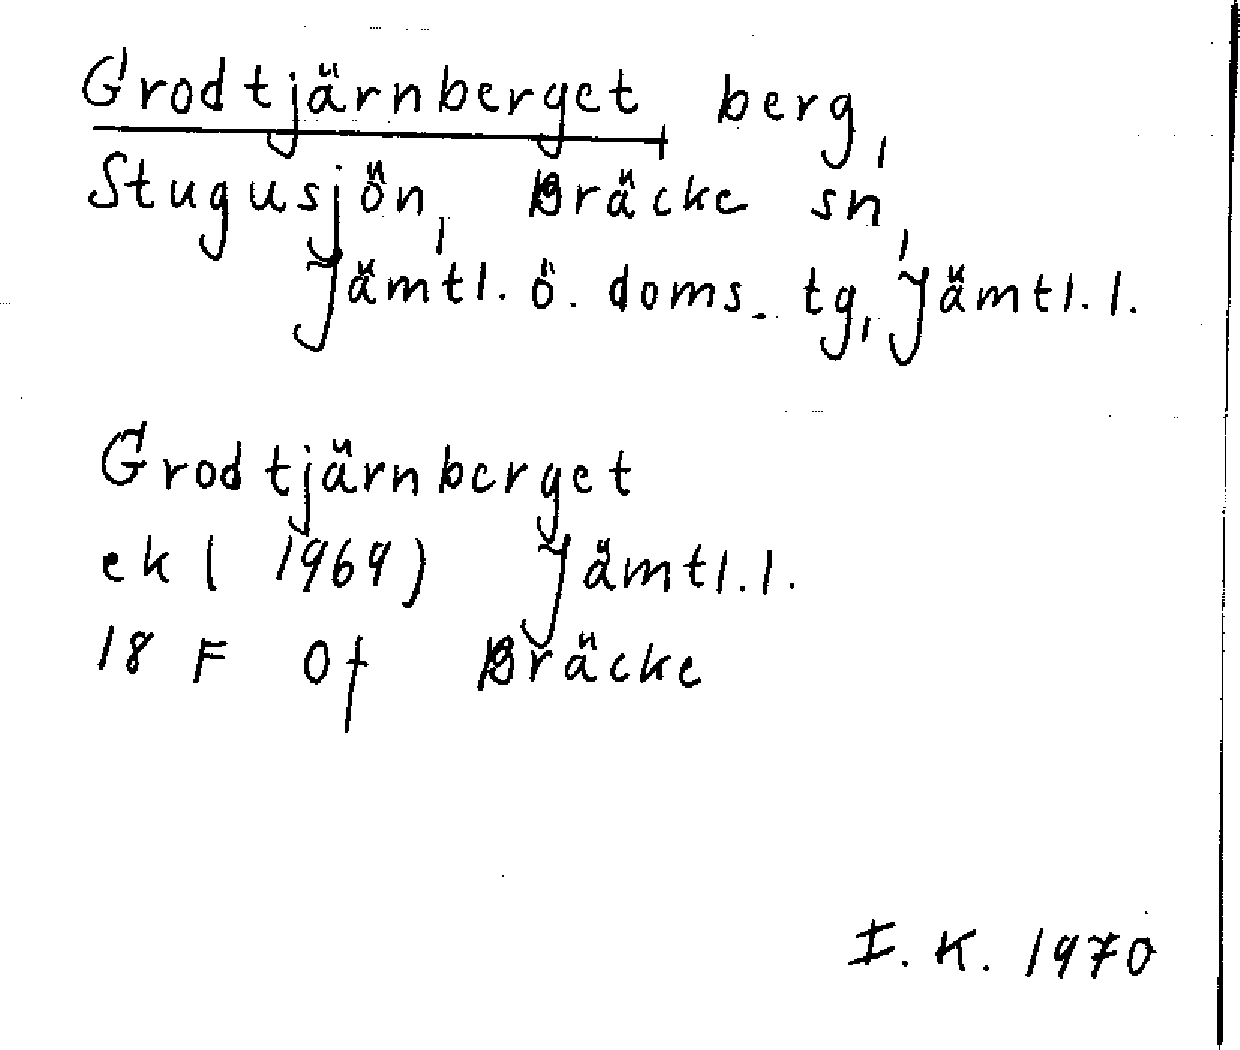 Grodtjärnberget berg,
Stugusjön, Bräcke sn,
Jämtl. ö. doms. tg, Jämtl. l.
Grodtjärnberget
ek ( 1969) Jämtl. l.
18 F Of Bräcke
I. K. 1970